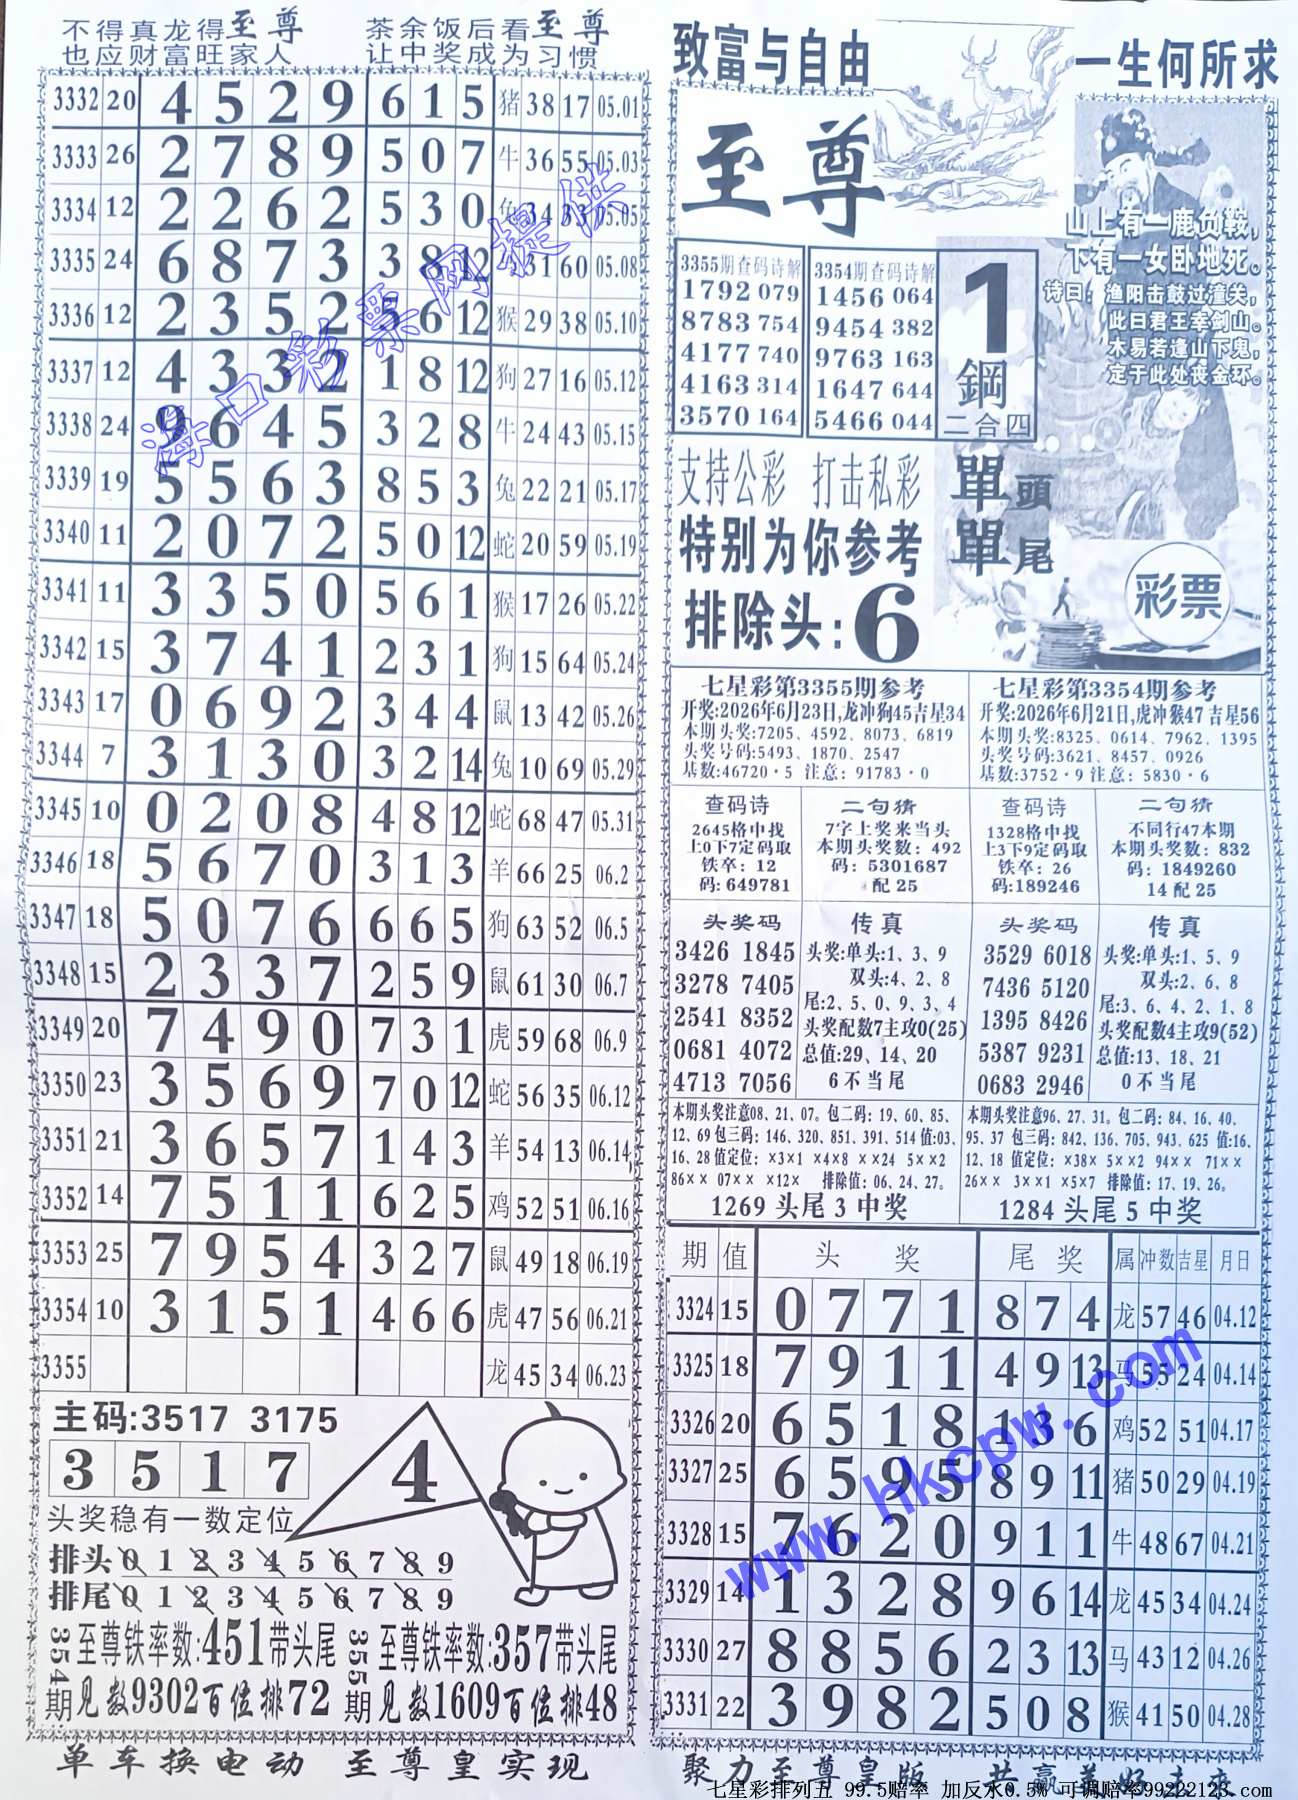 不得真龙得至尊 茶余饭后看至尊
也应财富旺家人 让中奖成为习惯
3332 20 4 5 2 9 6 1 5 猪 38 17 05.01
3333 26 2 7 8 9 5 0 7 牛 36 55 05.03
3334 12 2 2 6 2 5 3 0 兔 34 33 05.05
3335 24 6 8 7 3 3 8 12 31 60 05.08
3336 12 2 3 5 2 5 6 12 猴 29 38 05.10
3337 12 4 3 3 2 1 8 12 狗 27 16 05.12
3338 24 9 6 4 5 3 2 8 牛 24 43 05.15
3339 19 5 5 6 3 8 5 3 兔 22 21 05.17
3340 11 2 0 7 2 5 0 12 蛇 20 59 05.19
3341 11 3 3 5 0 5 6 1 猴 17 26 05.22
3342 15 3 7 4 1 2 3 1 狗 15 64 05.24
3343 17 0 6 9 2 3 4 4 鼠 13 42 05.26
3344 7 3 1 3 0 3 2 14 兔 10 69 05.29
3345 10 0 2 0 8 4 8 12 蛇 68 47 05.31
3346 18 5 6 7 0 3 1 3 羊 66 25 06.2
3347 18 5 0 7 6 6 6 5 狗 63 52 06.5
3348 15 2 3 3 7 2 5 9 鼠 61 30 06.7
3349 20 7 4 9 0 7 3 1 虎 59 68 06.9
3350 23 3 5 6 9 7 0 12 蛇 56 35 06.12
3351 21 3 6 5 7 1 4 3 羊 54 13 06.14
3352 14 7 5 1 1 6 2 5 鸡 52 51 06.16
3353 25 7 9 5 4 3 2 7 鼠 49 18 06.19
3354 10 3 1 5 1 4 6 6 虎 47 56 06.21
3355 龙 45 34 06.23
海口彩票网提供
主码:3517 3175
3 5 1 7
4
头奖稳有一数定位
排头 0 1 2 3 4 5 6 7 8 9
排尾 0 1 2 3 4 5 6 7 8 9
354期 至尊铁率数:451带头尾
见数9302百位排72
355期 至尊铁率数:357带头尾
见数1609百位排48
单车换电动 至尊皇实现
致富与自由 一生何所求
至尊
山上有一鹿负鞍,
下有一女卧地死。
诗曰:渔阳击鼓过潼关,
此日君王幸剑山。
木易若逢山下鬼,
定于此处丧金环。
3355期查码诗解
1792 079
8783 754
4177 740
4163 314
3570 164
3354期查码诗解
1456 064
9454 382
9763 163
1647 644
5466 044
1
鋼
二合四
支持公彩 打击私彩
特别为你参考
排除头:6
單頭
單尾
彩票
七星彩第3355期参考
开奖:2026年6月23日,龙冲狗45吉星34
本期头奖:7205、4592、8073、6819
头奖号码:5493、1870、2547
基数:46720·5 注意:91783·0
七星彩第3354期参考
开奖:2026年6月21日,虎冲猴47 吉星56
本期头奖:8325、0614、7962、1395
头奖号码:3621、8457、0926
基数:3752·9 注意:5830·6
查码诗
2645格中找
上0下7定码取
铁卒:12
码:649781
二句猜
7字上奖来当头
本期头奖数:492
码:5301687
配25
查码诗
1328格中找
上3下9定码取
铁卒:26
码:189246
二句猜
不同行47本期
本期头奖数:832
码:1849260
14配25
头奖码
3426 1845
3278 7405
2541 8352
0681 4072
4713 7056
传真
头奖:单头:1、3、9
双头:4、2、8
尾:2、5、0、9、3、4
头奖配数7主攻0(25)
总值:29、14、20
6不当尾
头奖码
3529 6018
7436 5120
1395 8426
5387 9231
0683 2946
传真
头奖:单头:1、5、9
双头:2、6、8
尾:3、6、4、2、1、8
头奖配数4主攻9(52)
总值:13、18、21
0不当尾
本期头奖注意08、21、07。包二码:19、60、85、
12、69 包三码:146、320、851、391、514 值:03、
16、28 值定位:×3×1 ×4×8 ××24 5××2
86×× 07×× ×12× 排除值:06、24、27。
1269头尾3中奖
本期头奖注意96、27、31。包二码:84、16、40、
95、37 包三码:842、136、705、943、625 值:16、
12、18 值定位:×38× 5××2 94×× 71××
26×× 3××1 ×5×7 排除值:17、19、26。
1284头尾5中奖
期 值 头奖 尾奖 属 冲数 吉星 月日
3324 15 0 7 7 1 8 7 4 龙 57 46 04.12
3325 18 7 9 1 1 4 9 13 马 55 24 04.14
3326 20 6 5 1 8 1 3 6 鸡 52 51 04.17
3327 25 6 5 9 5 8 9 11 猪 50 29 04.19
3328 15 7 6 2 0 9 1 1 牛 48 67 04.21
3329 14 1 3 2 8 9 6 14 龙 45 34 04.24
3330 27 8 8 5 6 2 3 13 马 43 12 04.26
3331 22 3 9 8 2 5 0 8 猴 41 50 04.28
www.hkcpw.com
聚力至尊皇版 共赢美好未来
七星彩排列五 99.5赔率 加反水0.5% 可调赔率99222123.com